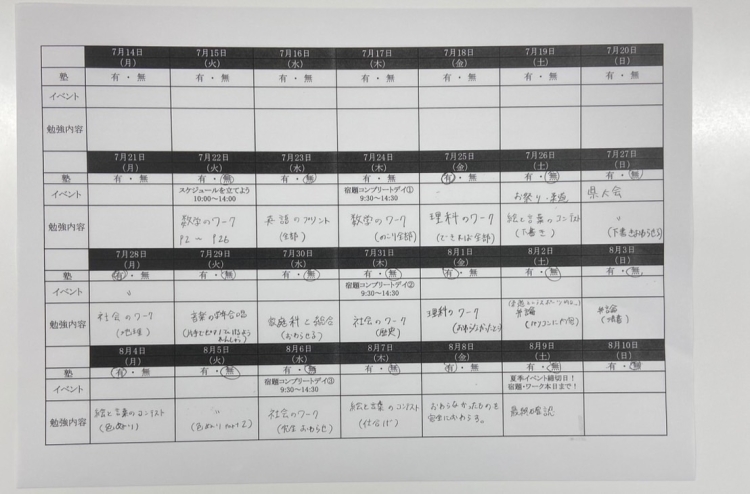 7月14日 7月15日 7月16日 7月17日 7月18日 7月19日 7月20日
(月) (火) (水) (木) (金) (土) (日)
塾 有・無 有・無 有・無 有・無 有・無 有・無 有・無
イベント
勉強内容
7月21日 7月22日 7月23日 7月24日 7月25日 7月26日 7月27日
(月) (火) (水) (木) (金) (土) (日)
塾 有・無 有・無 有・無 有・無 有・無 有・無 有・無
イベント スケジュールを立てよう 宿題コンプリートデイ① お祭り・柔道 県大会
10:00～14:00 9:30～14:30
勉強内容 数学のワーク 英語のプリント 数学のワーク 理科のワーク 絵と言葉のコンテスト 〃
P2 ～ P26 (全部) (のこり全部) (できれば全部) (下書き) (下書きおわらせる)
7月28日 7月29日 7月30日 7月31日 8月1日 8月2日 8月3日
(月) (火) (水) (木) (金) (土) (日)
塾 有・無 有・無 有・無 有・無 有・無 有・無 有・無
イベント 〃 宿題コンプリートデイ②
9:30～14:30
勉強内容 社会のワーク 音楽の 家庭科と総合 社会のワーク 理科のワーク 弁論 弁論
(地理) (おわらせる) (歴史) (清書)
8月4日 8月5日 8月6日 8月7日 8月8日 8月9日 8月10日
(月) (火) (水) (木) (金) (土) (日)
塾 有・無 有・無 有・無 有・無 有・無 有・無 有・無
イベント 宿題コンプリートデイ③ 夏季イベント締切日!
9:30～14:30 宿題・ワーク本日まで!
勉強内容 絵と言葉のコンテスト 〃 社会のワーク 絵と言葉のコンテスト おわらなかったものを 最終確認
(色ぬり) (色ぬり part 2) (公民 おわらせ) (仕上げ) 完全におわらる。